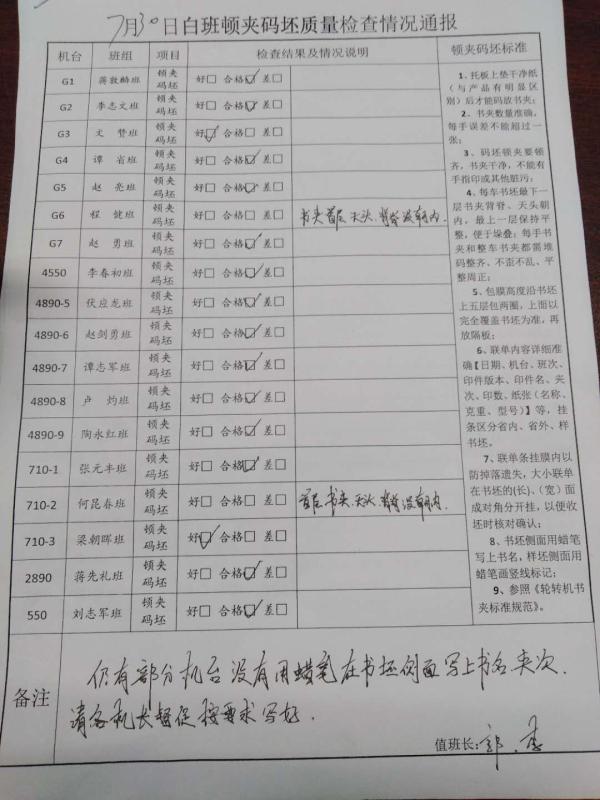 7月30日白班顿夹码坯质量检查情况通报
机台 班组 项目 检查结果及情况说明 顿夹码坯标准
G1 蒋敦麟班 顿夹码坯 好□ 合格☑ 差□
G2 李志文班 顿夹码坯 好□ 合格☑ 差□
G3 文 赞班 顿夹码坯 好☑ 合格□ 差□
G4 谭 省班 顿夹码坯 好□ 合格☑ 差□
G5 赵 亮班 顿夹码坯 好□ 合格☑ 差□
G6 程 健班 顿夹码坯 好□ 合格☑ 差□ 书夹首层天头、背脊没朝内.
G7 赵 勇班 顿夹码坯 好□ 合格☑ 差□
4550 李春初班 顿夹码坯 好□ 合格☑ 差□
4890-5 伏应龙班 顿夹码坯 好□ 合格☑ 差□
4890-6 赵剑勇班 顿夹码坯 好□ 合格☑ 差□
4890-7 谭志军班 顿夹码坯 好□ 合格☑ 差□
4890-8 卢 灼班 顿夹码坯 好□ 合格☑ 差□
4890-9 陶永红班 顿夹码坯 好□ 合格☑ 差□
710-1 张元丰班 顿夹码坯 好□ 合格☑ 差□
710-2 何昆春班 顿夹码坯 好□ 合格☑ 差□ 首层书夹、天头、背脊没朝内.
710-3 梁朝晖班 顿夹码坯 好☑ 合格□ 差□
2890 蒋先礼班 顿夹码坯 好□ 合格☑ 差□
550 刘志军班 顿夹码坯 好□ 合格☑ 差□
1、托板上垫干净纸
（与产品有明显区
别）后才能码放书夹；
2、书夹数量准确，
每手误差不能超过一
张；
3、码坯顿夹要顿
齐，书夹干净，不能有
手指印或其他脏污；
4、每车书坯最下一
层书夹背脊、天头朝
内，最上一层保持平
整，便于垛叠；每手书
夹和整车书夹都需堆
码整齐、不歪不乱、平
整周正；
5、包膜高度沿书坯
上五层包两圈，上面以
完全覆盖书坯为准，再
放隔板；
6、联单内容详细准
确【日期、机台、班次、
印件版本、印件名、夹
次、印数、纸张（名称、
克重、型号）】等，挂
条区分省内、省外、样
书坯。
7、联单条挂膜内以
防掉落遗失，大小联单
在书坯的(长)、(宽)面
成对角分开挂，以便收
坯时核对确认；
8、书坯侧面用蜡笔
写上书名，样坯侧面用
蜡笔画竖线标记；
9、参照《轮转机书
夹标准规范》。
备注 仍有部分机台没有用蜡笔在书坯侧面写上书名夹次.
请各机长督促按要求写好.
值班长：